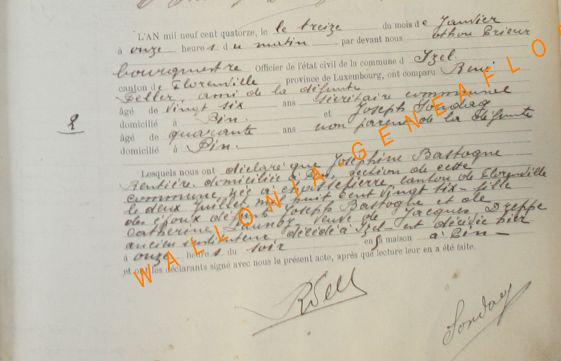 L'AN mil neuf cent quatorze, le treize du mois de Janvier
à onze heures du matin par devant nous Othon Crieur
bourgmestre Officier de l'état civil de la commune d Izel
canton de Florenville province de Luxembourg, ont comparu René
ami de la défunte
âgé de vingt six ans Secrétaire communal
domicilié à Pin et Joseph Sondag
âgé de quarante ans non parent de la défunte
2
domicilié à Pin.
Lesquels nous ont déclaré que Joséphine Bastogne
Rentière domiciliée à Pin, section de cette
commune, née à canton de Florenville
le deux juillet mil huit cent vingt six fille
des époux défunts Joseph Bastogne et de
Catherine veuve de Jacques
ancien instituteur décédé à Izel est décédée hier
à onze heures du soir en sa maison à Pin
et ont les déclarants signé avec nous le présent acte, après que lecture leur en a été faite.
Sondag
WALLONIA-GENEAFLO